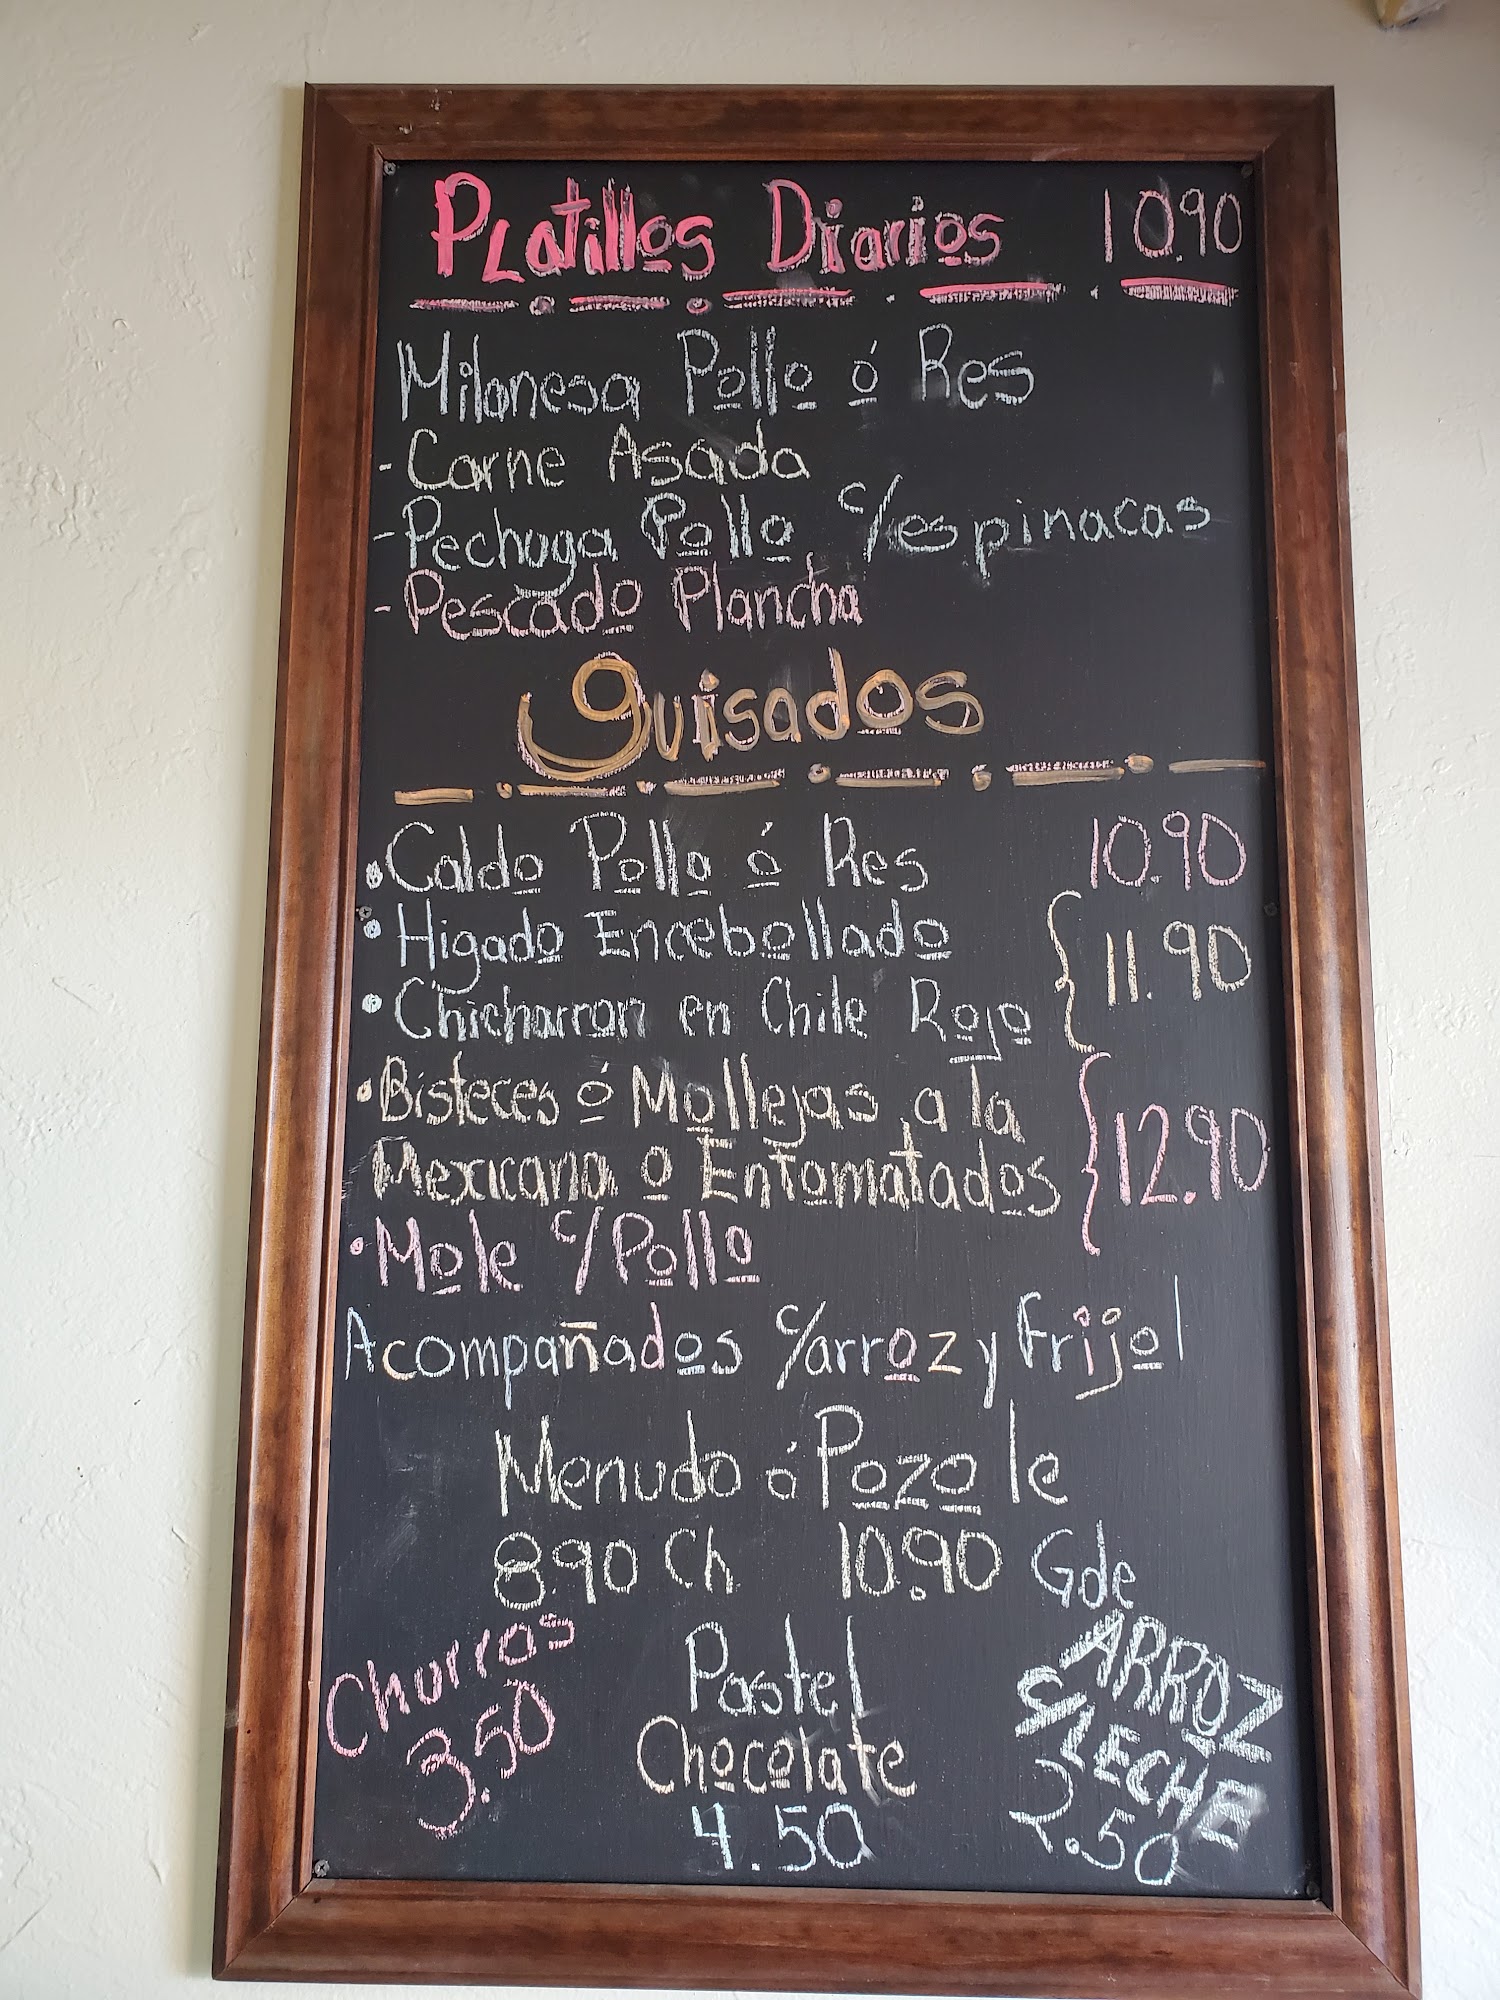 Platillos Diarios 10.90
Milanesa Pollo ó Res
- Carne Asada
- Pechuga Pollo c/espinacas
- Pescado Plancha
guisados
• Caldo Pollo ó Res 10.90
• Higado Encebollado
• Chicharron en Chile Rojo } 11.90
• Bisteces ó Mollejas a la
Mexicana o Entomatados } 12.90
• Mole c/Pollo
Acompañados c/arroz y Frijol
Menudo ó Pozole
8.90 Ch 10.90 Gde
Churros
3.50
Pastel
Chocolate
4.50
ARROZ
C/LECHE
2.50